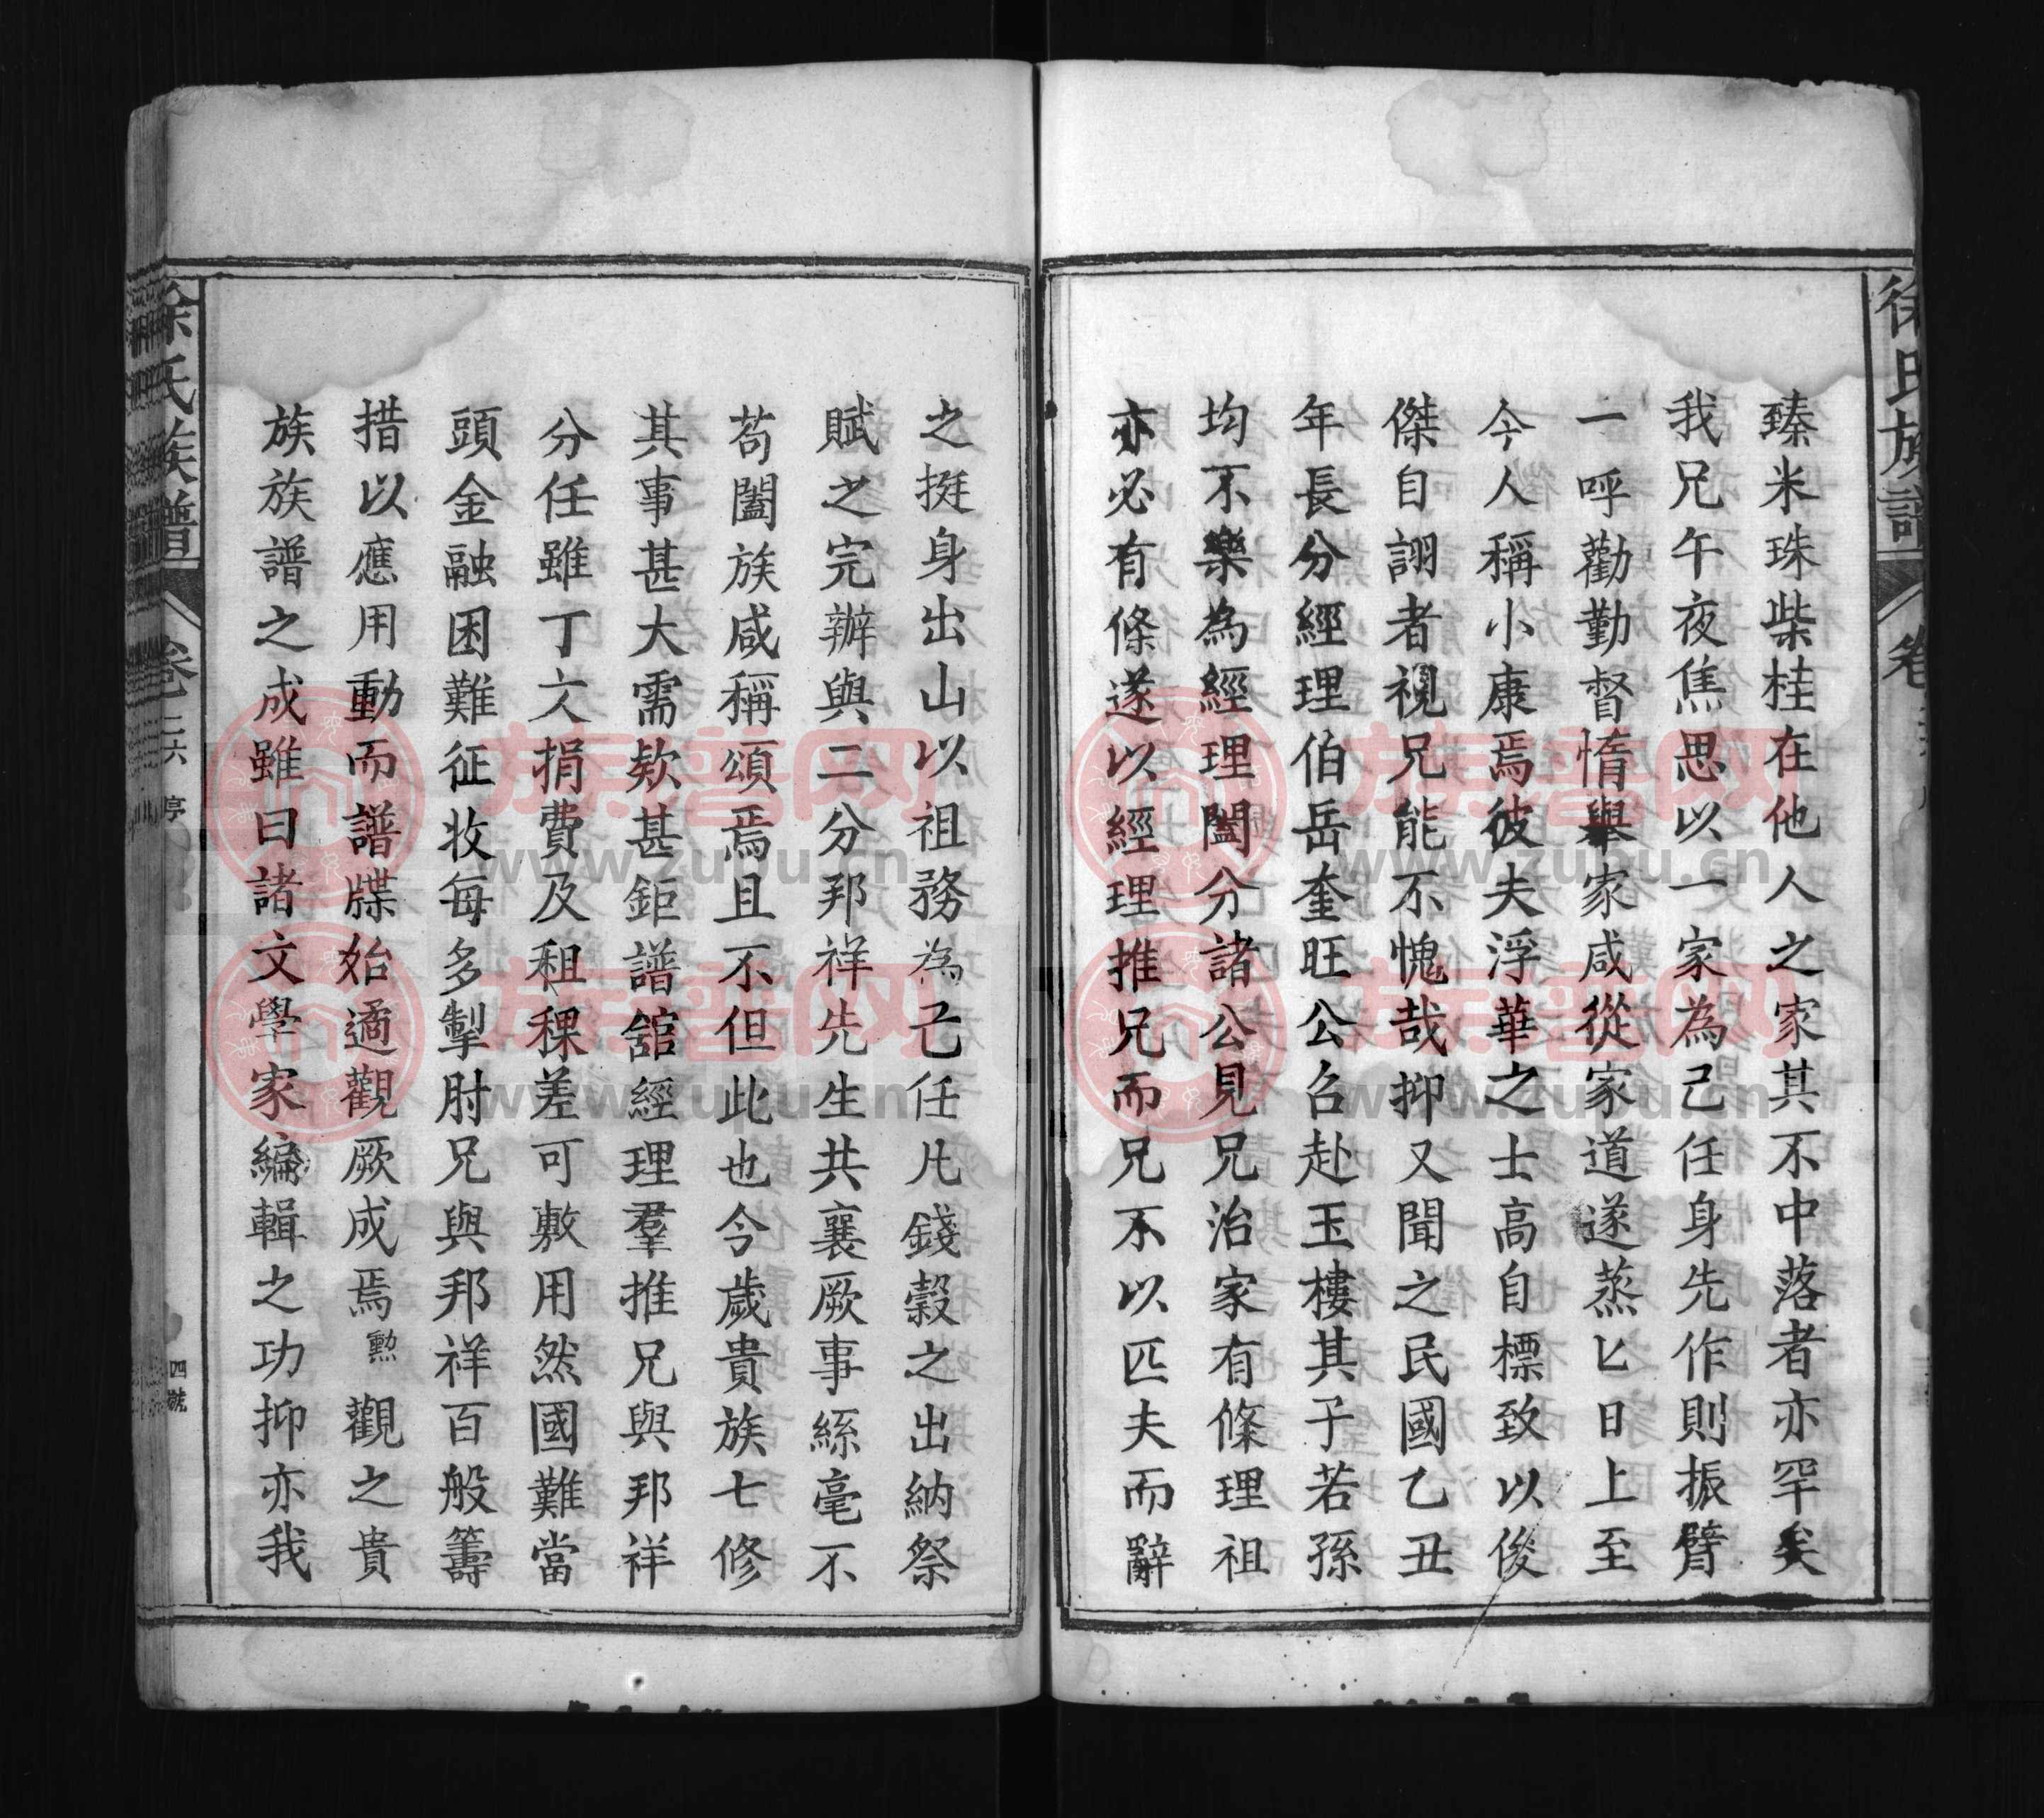 臻米珠柴桂在他人之家其不中落者亦罕矣
我兄午夜焦思以一家為己任身先作則振臂
一呼勸勤督惰舉家咸從家道遂蒸匕日上至
今人稱小康焉彼夫浮華之士高自標致以俊
傑自詡者視兄能不愧哉抑又聞之民國乙丑
年長分經理伯岳奎旺公召赴玉樓其子若孫
均不樂為經理闔分諸公見兄治家有條理祖
亦必有條遂以經理推兄而兄不以匹夫而辭
之挺身出山以祖務為己任凡錢穀之出納祭
賦之完辦與二分邦祥先生共襄厥事絲毫不
苟闔族咸稱頌焉且不但此也今歲貴族七修
其事甚大需欵甚鉅譜舘經理羣推兄與邦祥
分任雖丁文捐費及租稞差可敷用然國難當
頭金融困難征收每多掣肘兄與邦祥百般籌
措以應用動而譜牒始遹觀厥成焉勲觀之貴
族族譜之成雖曰諸文學家編輯之功抑亦我
徐氏族譜 卷二六 序 四號
徐氏族譜 卷
族譜网
www.zupu.cn
族譜网
www.zupu.cn
族譜网
www.zupu.cn
族譜网
www.zupu.cn